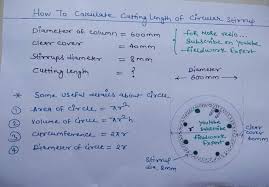 How To Calculate Cutting Length of Circular Stirrup
Diameter of column = 600mm
Clear cover = 40mm
Stirrups diameter = 8mm
Cutting length = ?
for more video...
Subscribe on youtube
fieldwork Expert
Diameter
600mm
* Some useful details about circle
① Area of circle = πr²
② Volume of circle = πr²h
③ Circumference = 2πr
④ Diameter of circle = 2r
r
youtube
Subscribe
fieldwork
Expert
Clear
cover
40mm
Stirrup
dia. 8mm